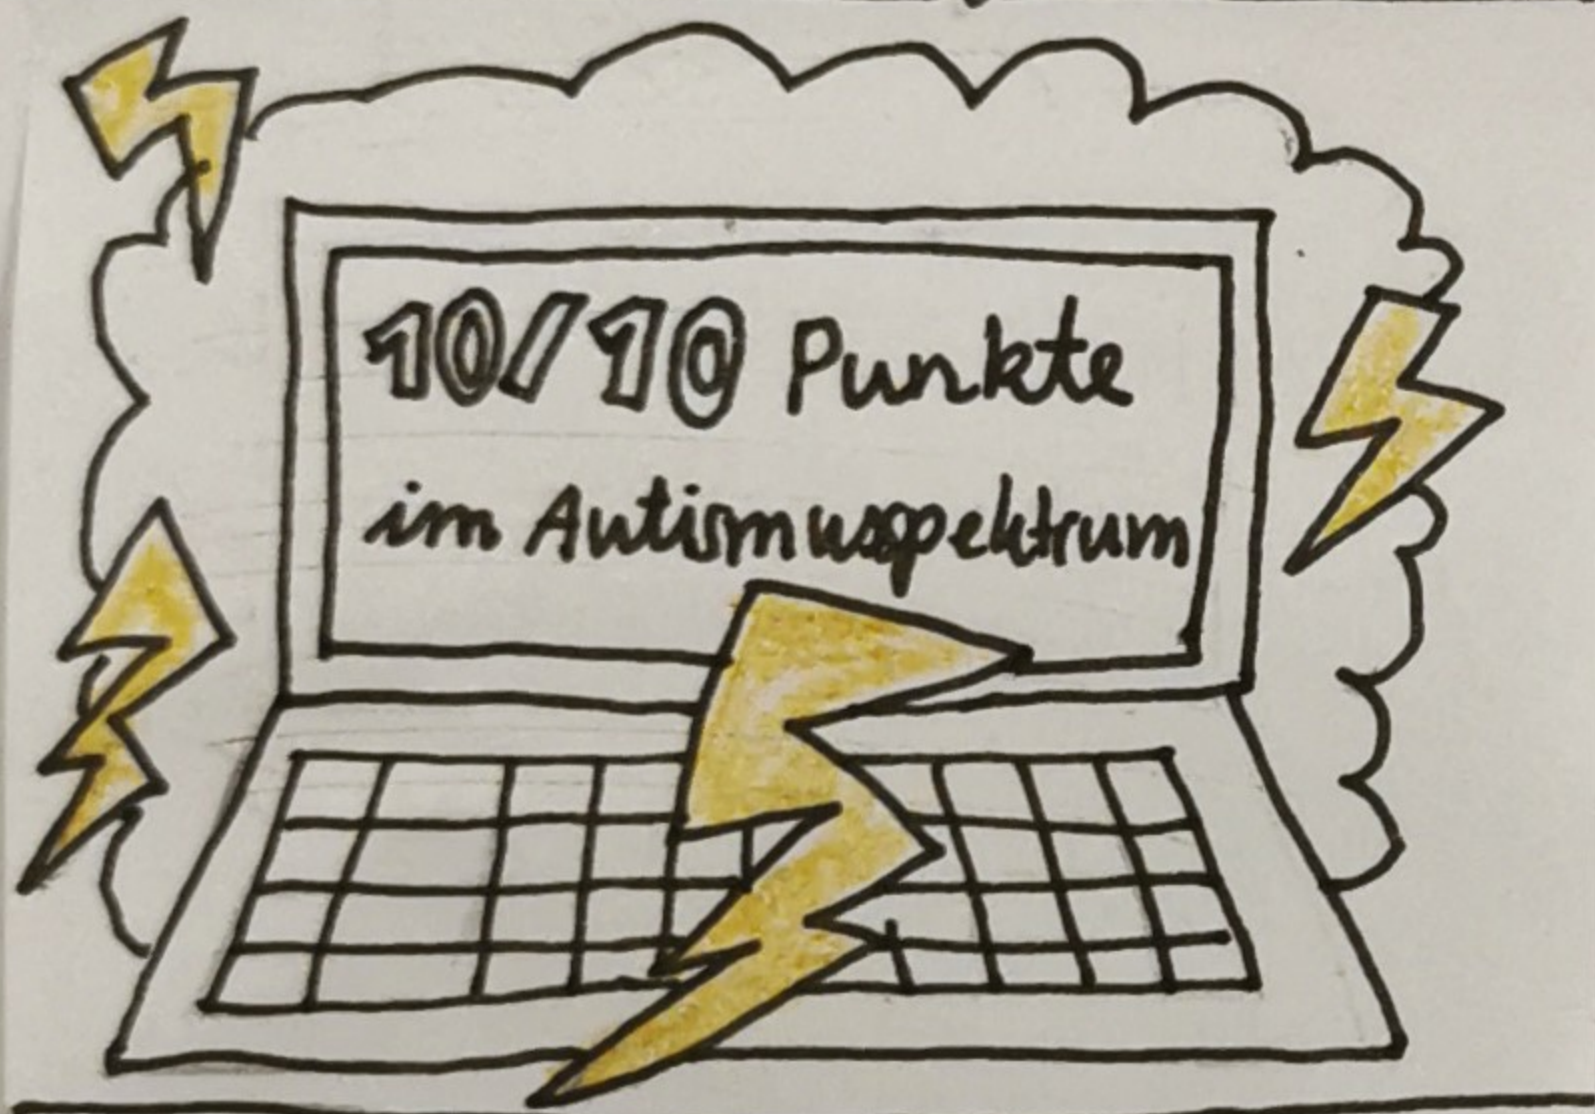 10/10 Punkte
im Autismusspektrum